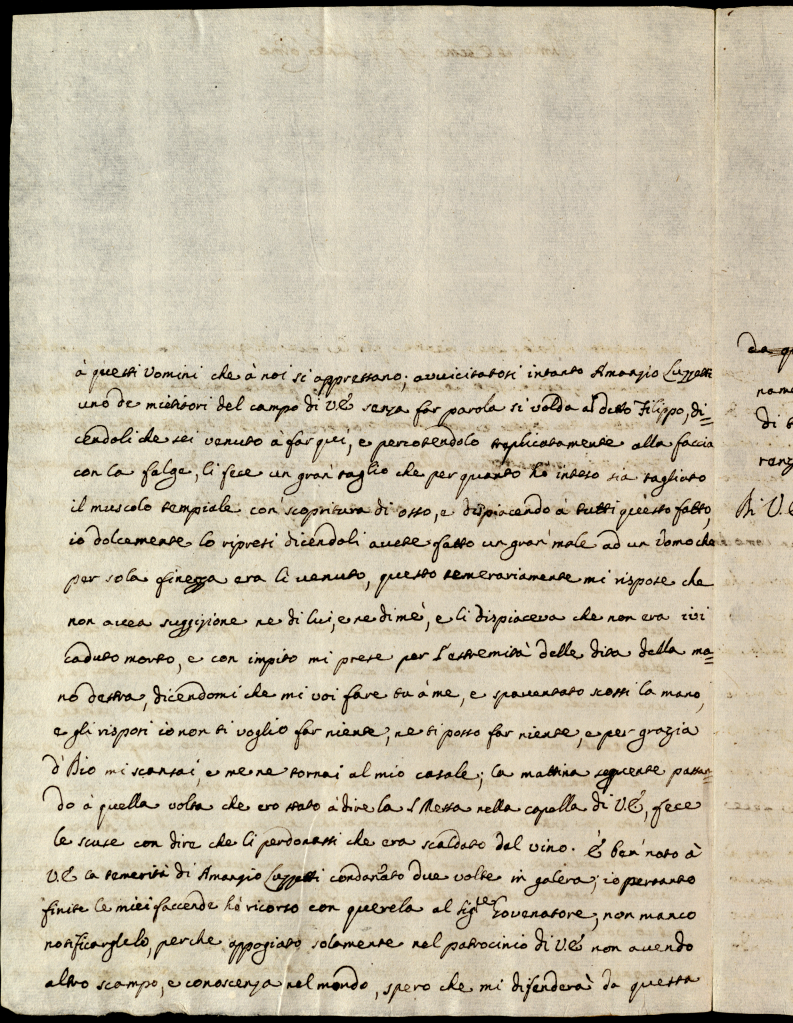 à questi Vomini che à noi si appressano; avvicinatosi intanto Amanzio Luzzetti
uno de mietitori del campo di V.E. senza far parola si volda al detto Filippo, di=
cendoli che sei venuto à far qui, e percotendolo replicatamente alla faccia
con la falge, li fece un gran' taglio che per quanto hò inteso sia tagliato
il muscolo tempiale con' scopritura di osso, e dispiacendo à tutti questo fatto,
io dolcemente lo ripresi dicendoli avete fatto un gran' male ad un Vomo che
per sola finezza era li venuto, questo temerariamente mi rispose che
non avea suggizione ne di lui, e ne di mè, e li dispiaceva che non era ivi
caduto morto, e con impito mi prese per l'estremità delle dita della ma=
no destra, dicendomi che mi voi fare tu à me, e spaventato scossi la mano,
e gli risposi io non ti voglio far niente, ne ti posso far niente, e per grazia
d'Dio mi scansai, e me ne tornai al mio casale; la mattina seguente passan=
do à quella volta che ero stato à dire la S. Messa nella capella di V.E., fece
le scuse con dire che li perdonassi che era scaldato dal vino. È ben' noto à
V.E. la temerità di Amanzio Luzzetti condan'ato due volte in galera; io pertanto
finite le miei faccende hò ricorso con querela al Sig.re Governatore, non manco
notificarglelo, perche appogiato solamente nel patrocinio di V.E. non avendo
altro scampo, e conoscenza nel mondo, spero che mi difenderà da questa
di
Di V.E.